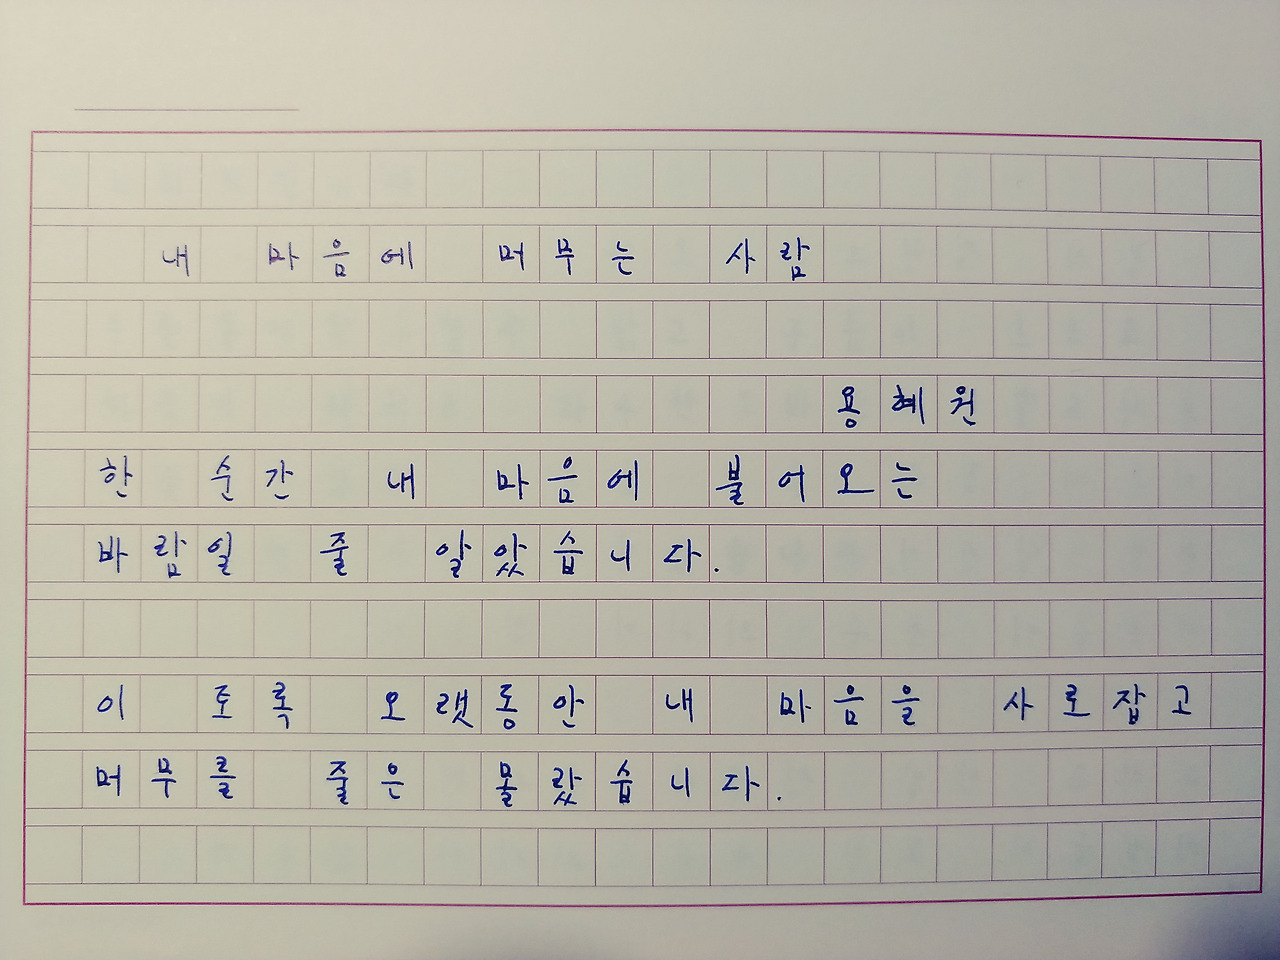 내 마음에 머무는 사람
용혜원
한 순간 내 마음에 불어오는
바람일 줄 알았습니다.
이 토록 오랫동안 내 마음을 사로잡고
머무를 줄은 몰랐습니다.